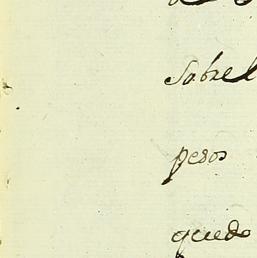 Sobre l
pesos
quedo